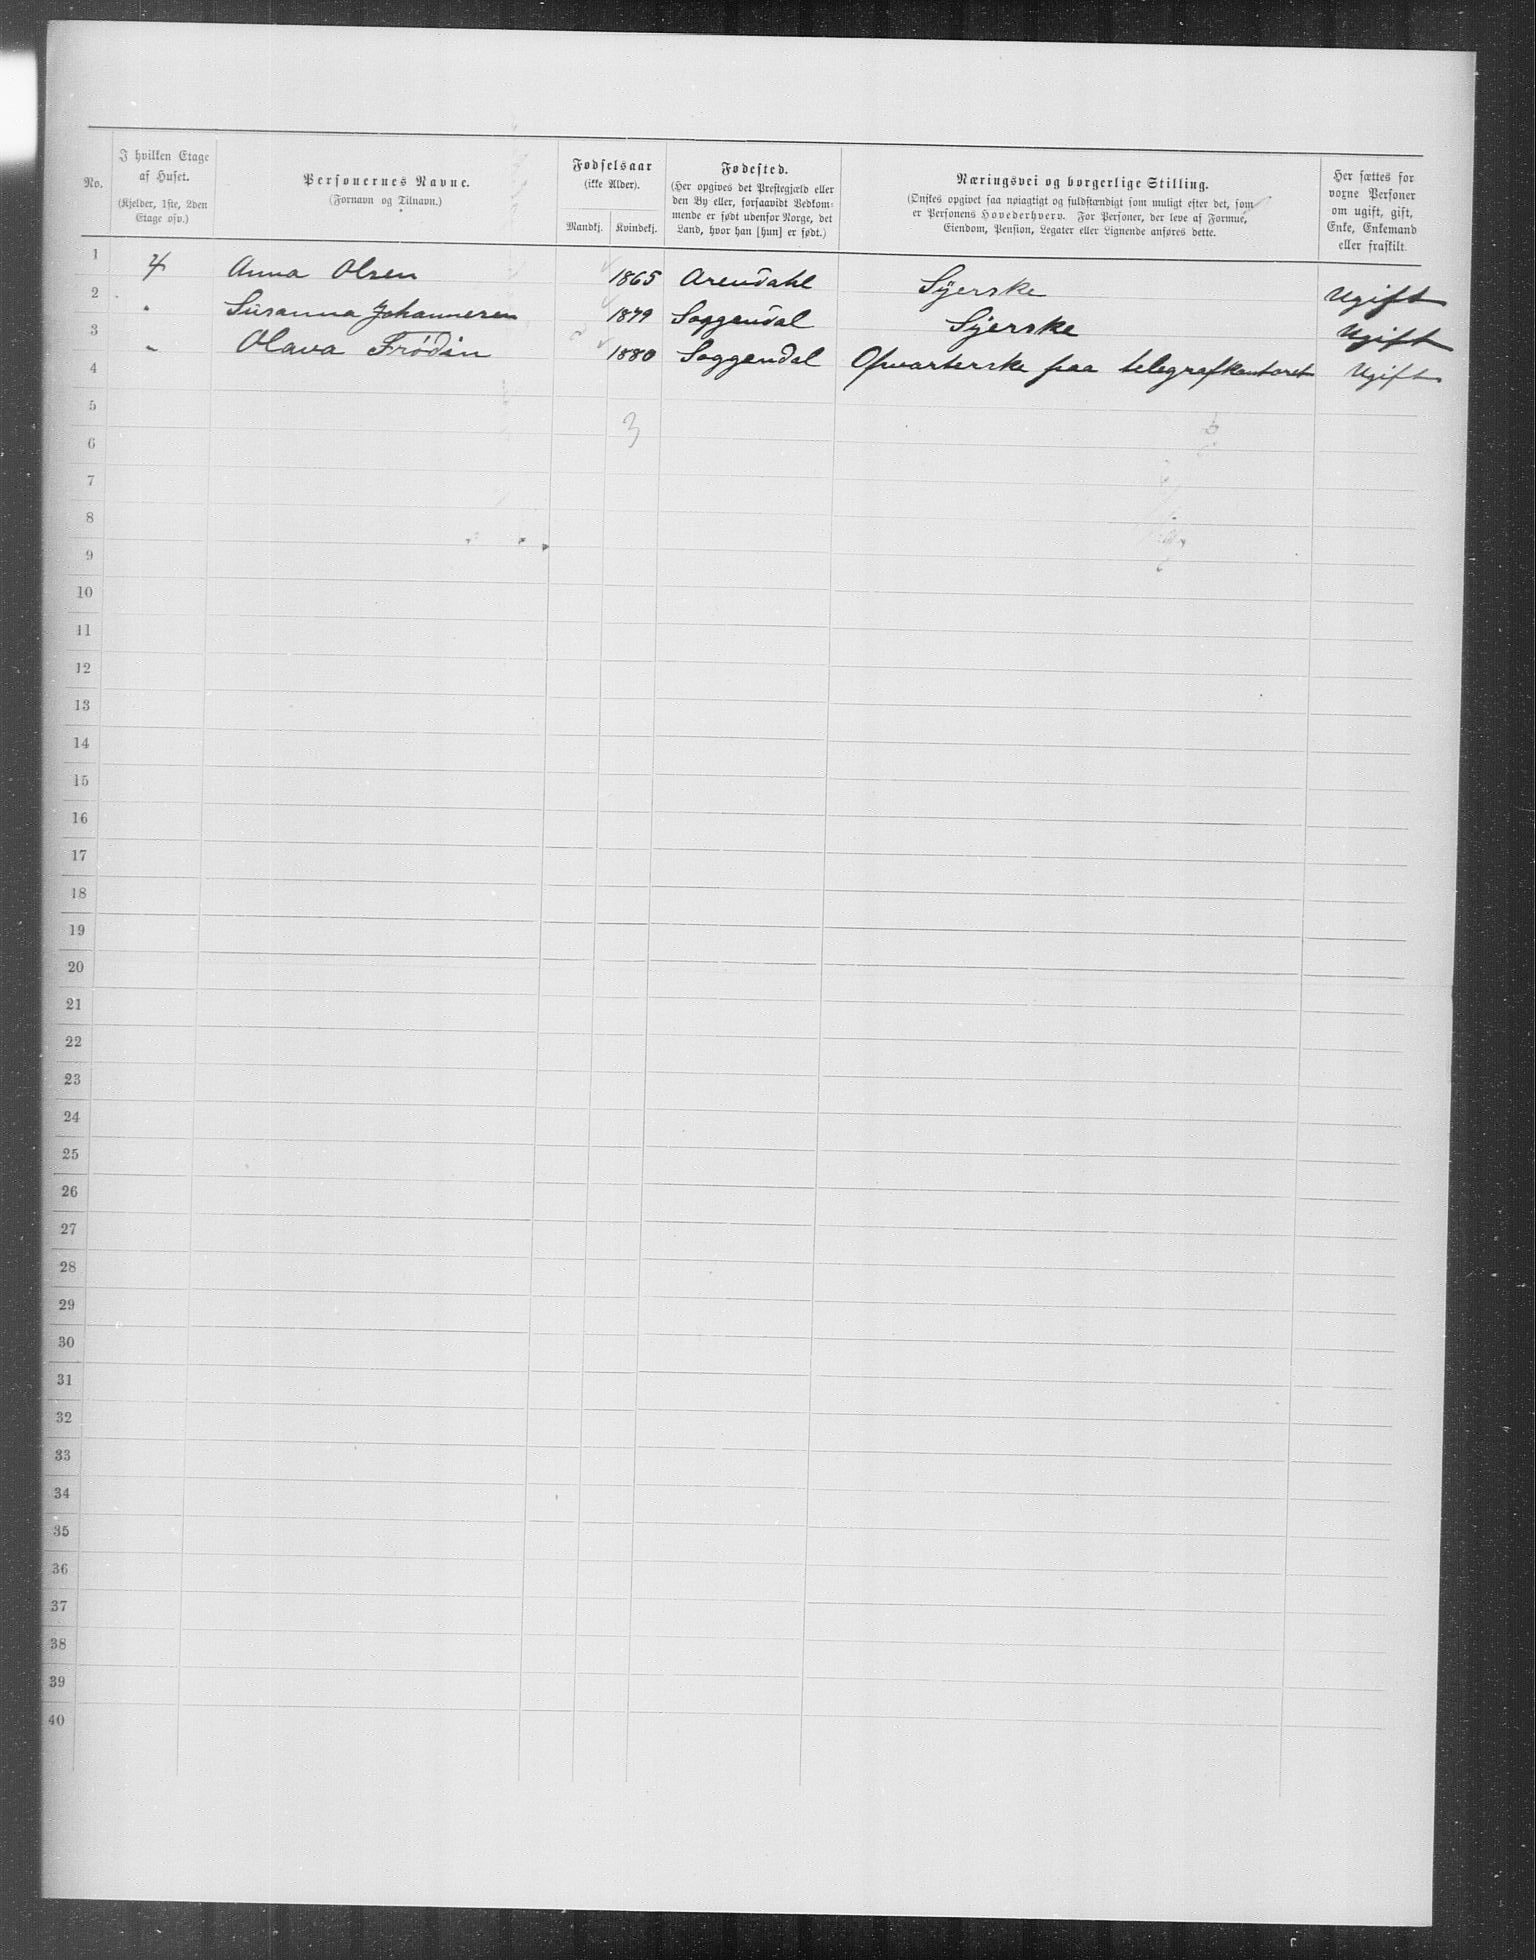 No.
I hvilken Etage
af Huset.
(Kjelder, 1ste, 2den
Etage osv.)
Personernes Navne.
(Fornavn og Tilnavn.)
Fødselsaar
(ikke Alder).
Mandkj. Kvindekj.
Fødested.
(Her opgives det Præstegjæld eller
den By eller, forsaavidt Vedkom-
mende er født udenfor Norge, det
Land, hvor han [hun] er født.)
Næringsvei og borgerlige Stilling.
(Ønskes opgivet saa nøiagtigt og fuldstændigt som muligt efter det, som
er Personens Hovederhverv. For Personer, der leve af Formue,
Eiendom, Pension, Legater eller Lignende anføres dette.
Her sættes for
voxne Personer
om ugift, gift,
Enke, Enkemand
eller fraskilt.
1 4 Anna Olsen 1865 Arendahl Syerske Ugift
2 " Susanna Johannesen 1879 Soggendal Syerske Ugift
3 " Olava Frödin 1880 Soggendal Opvarterske paa telegrafkontoret Ugift
4
5
3
6
7
8
9
10
11
12
13
14
15
16
17
18
19
20
21
22
23
24
25
26
27
28
29
30
31
32
33
34
35
36
37
38
39
40